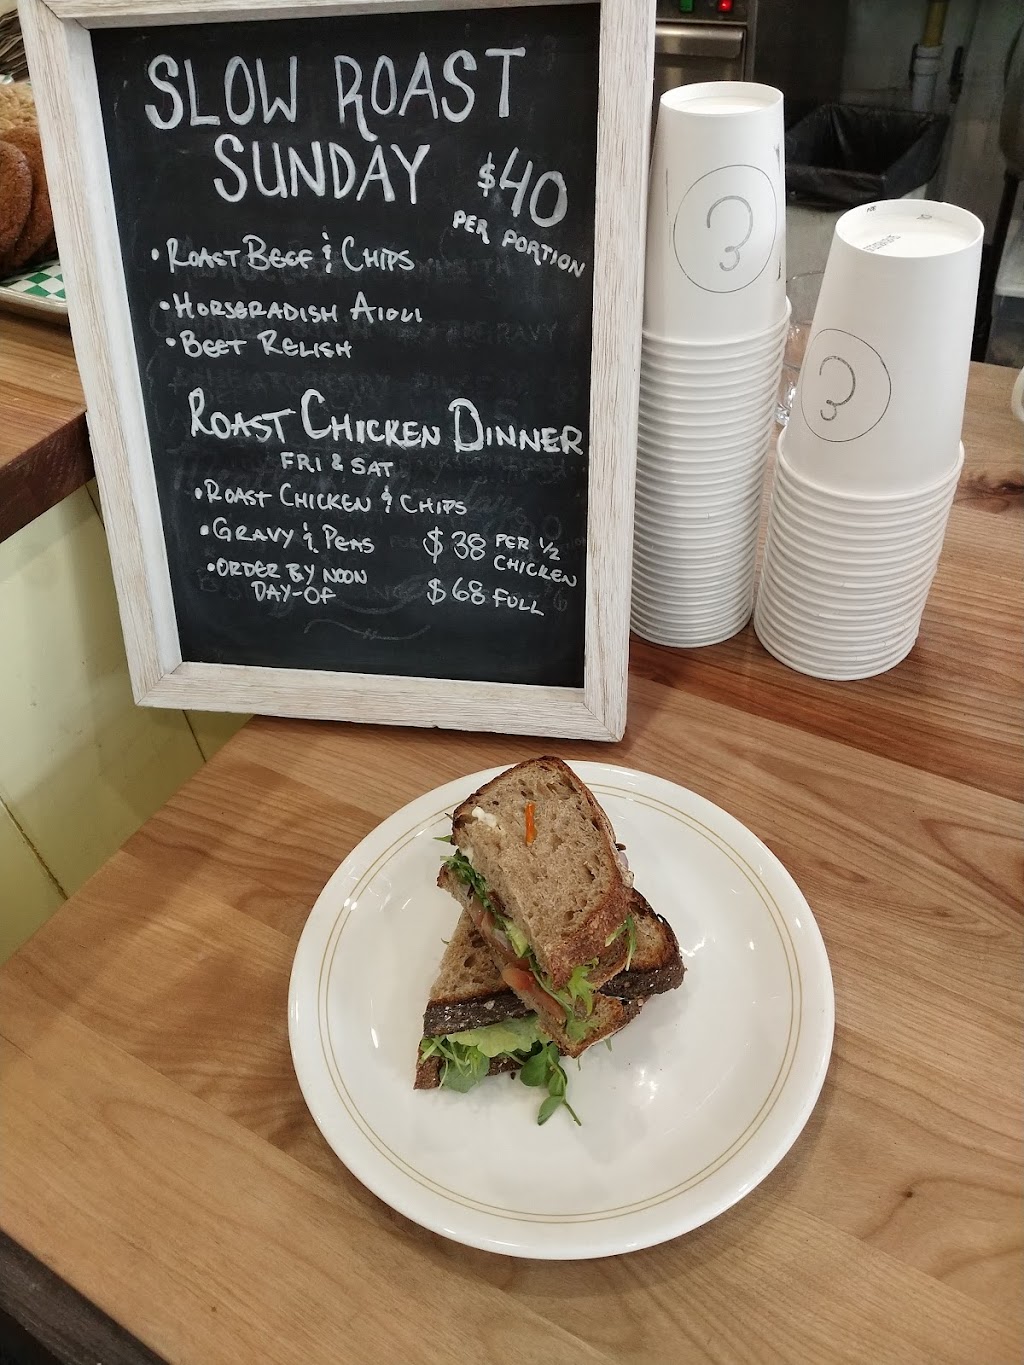 SLOW ROAST
SUNDAY
$40
PER PORTION
• ROAST BEEF & CHIPS
• HORSERADISH AIOLI
• BEET RELISH
ROAST CHICKEN DINNER
FRI & SAT
• ROAST CHICKEN & CHIPS
• GRAVY & PEAS $38 PER 1/2
CHICKEN
• ORDER BY NOON
DAY-OF $68 FULL